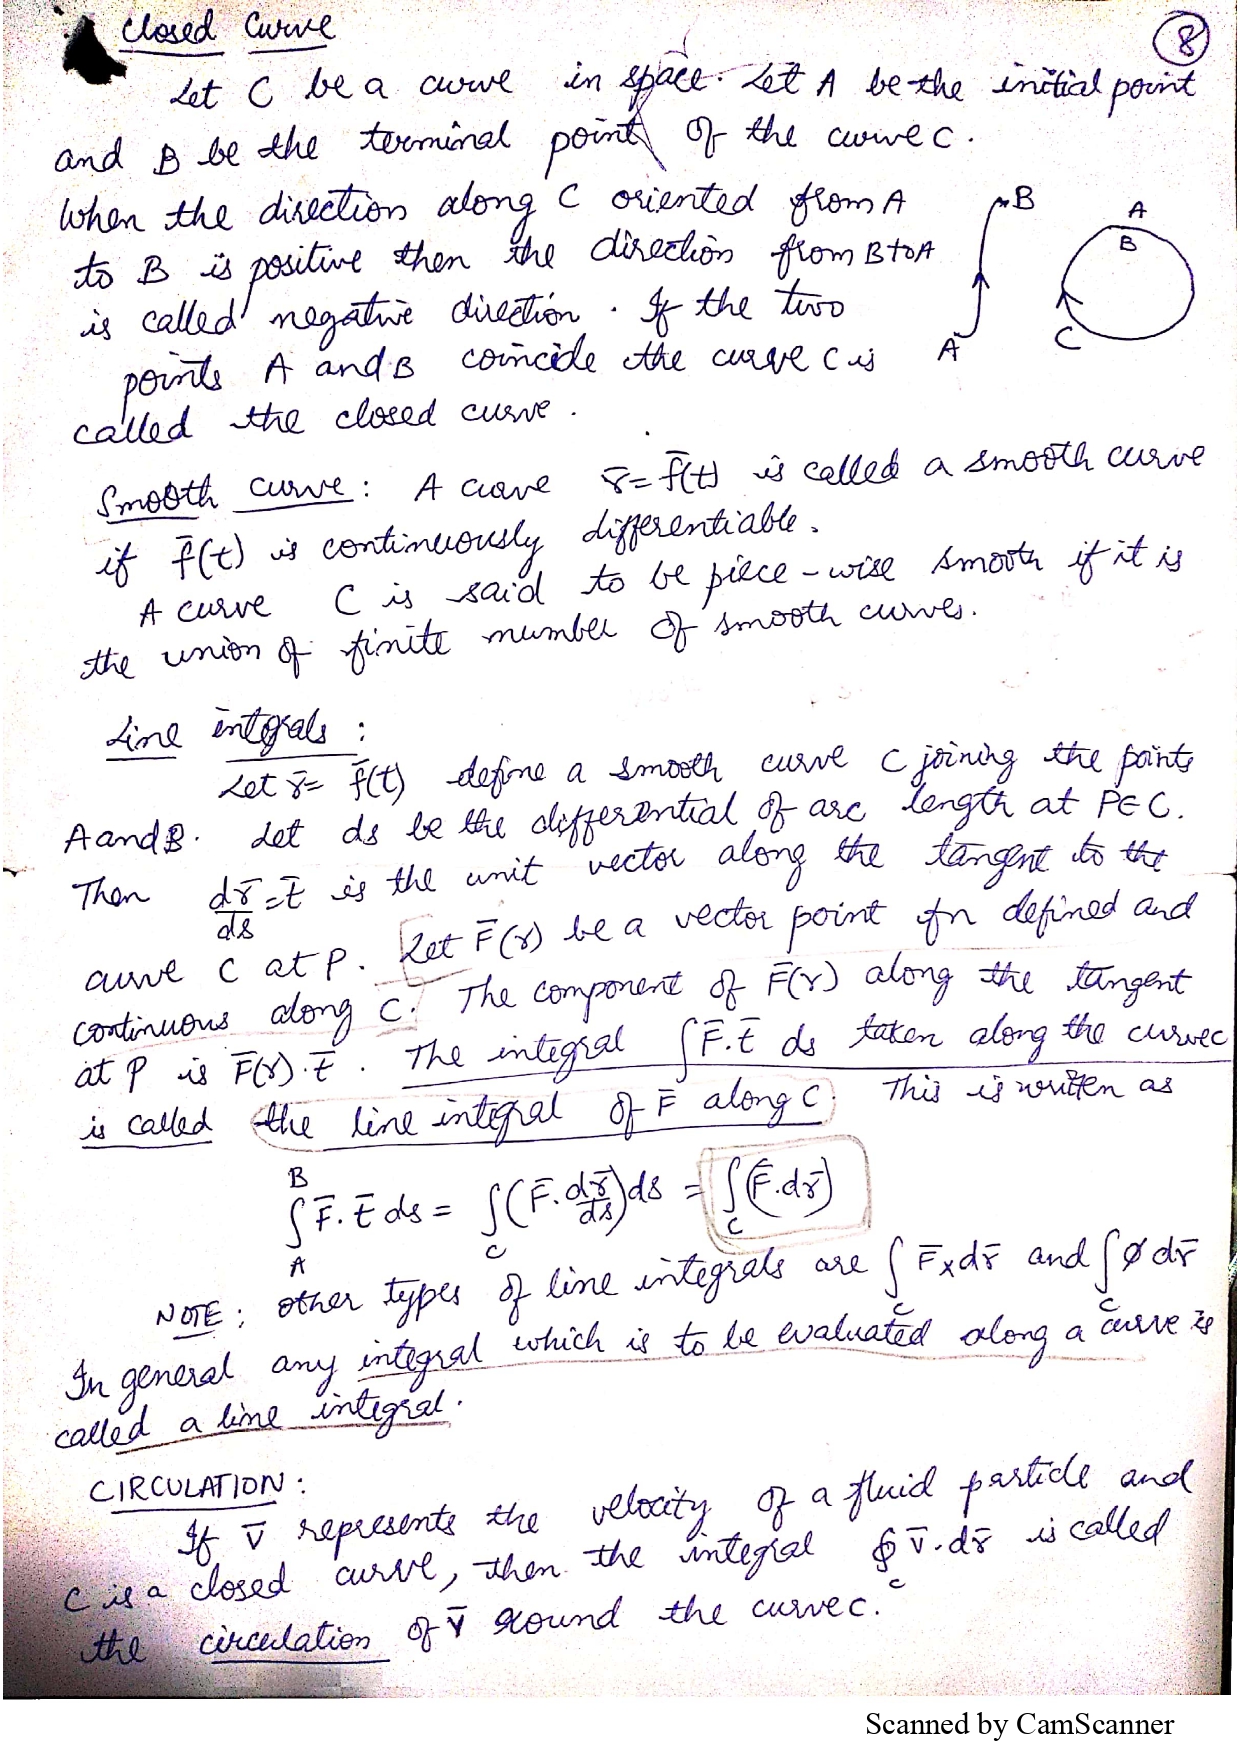 closed Curve
8
Let C be a curve in space. Let A be the initial point
and B be the terminal point of the curve C.
When the direction along C oriented from A
to B is positive then the direction from B to A
is called negative direction. If the two
points A and B coincide the curve C is
called the closed curve.
B
A
A
B
C
Smooth curve: A curve r̄ = f̄(t) is called a smooth curve
if f̄(t) is continuously differentiable.
A curve C is said to be piece-wise smooth if it is
the union of finite number of smooth curves.
Line integrals:
Let r̄ = f̄(t) define a smooth curve C joining the points
A and B. Let ds be the differential of arc length at P∈C.
Then dr̄/ds = t̄ is the unit vector along the tangent to the
curve C at P. Let F̄(r) be a vector point fn defined and
continuous along C. The component of F̄(r) along the tangent
at P is F̄(r).t̄. The integral ∫F̄.t̄ ds taken along the curve C
is called the line integral of F̄ along C. This is written as
∫_A^B F̄.t̄ ds = ∫_C (F̄.dr̄/ds)ds = ∫_C (F̄.dr̄)
NOTE: other types of line integrals are ∫_C F̄×dr̄ and ∫_C ø dr̄
In general any integral which is to be evaluated along a curve is
called a line integral.
CIRCULATION:
If v̄ represents the velocity of a fluid particle and
C is a closed curve, then the integral ∮_C v̄.dr̄ is called
the circulation of v̄ round the curve C.
Scanned by CamScanner